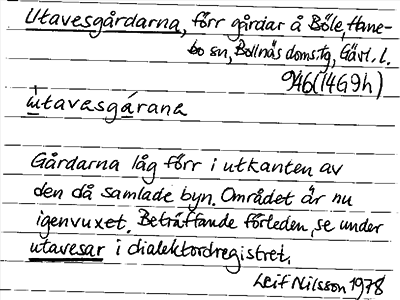 Utavesgårdarna, förr gårdar å Böle, Hane-
bo sn, Bollnäs doms.tg, Gävl. l.
946(14G9h)
ùtavasgárana
Gårdarna låg förr i utkanten av
den då samlade byn. Området är nu
igenvuxet. Beträffande förleden, se under
utavesar i dialektordregistret.
Leif Nilsson 1978